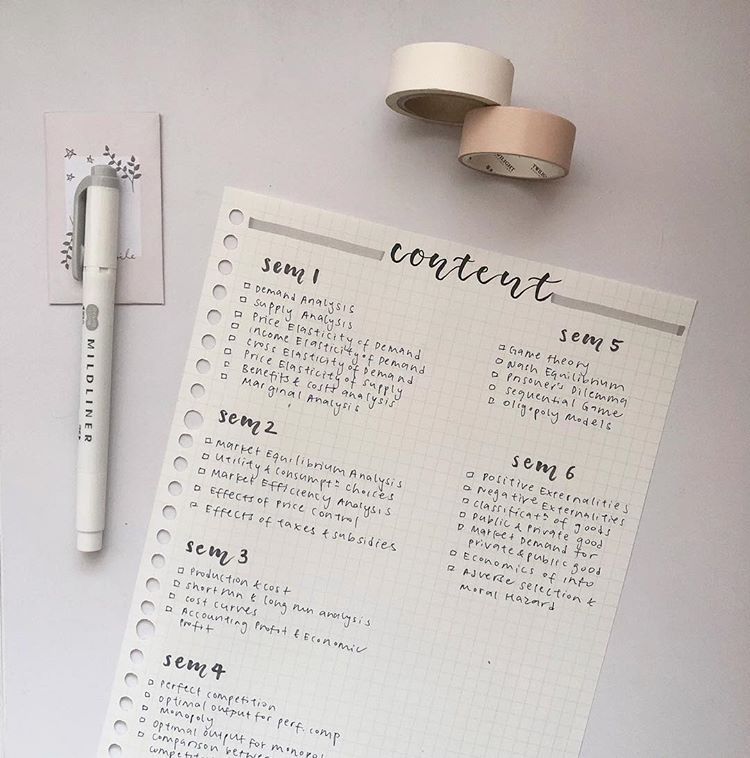 content
sem 1
Demand Analysis
Supply Analysis
Price Elasticity of Demand
Income Elasticity of Demand
Cross Elasticity of Demand
Price Elasticity of Supply
Benefits & costs analysis
Marginal Analysis
sem 2
Market Equilibrium Analysis
Utility & consumptⁿ choices
Market Efficiency Analysis
Effects of Price control
Effects of taxes & subsidies
sem 3
Production & cost
short run & long run analysis
cost curves
Accounting Profit & Economic
Profit
sem 4
Perfect competition
Optimal output for perf. comp
Monopoly
Optimal output for monopol
Comparison between
competiti
sem 5
Game theory
Nash Equilibrium
Prisoner's Dilemma
Sequential Game
Oligopoly Models
sem 6
Positive Externalities
Negative Externalities
Classificatⁿ of goods
Public & Private good
Market Demand for
private & public good
Economics of info
Adverse selection &
Moral Hazard
MILDLINER
TWILIGHT